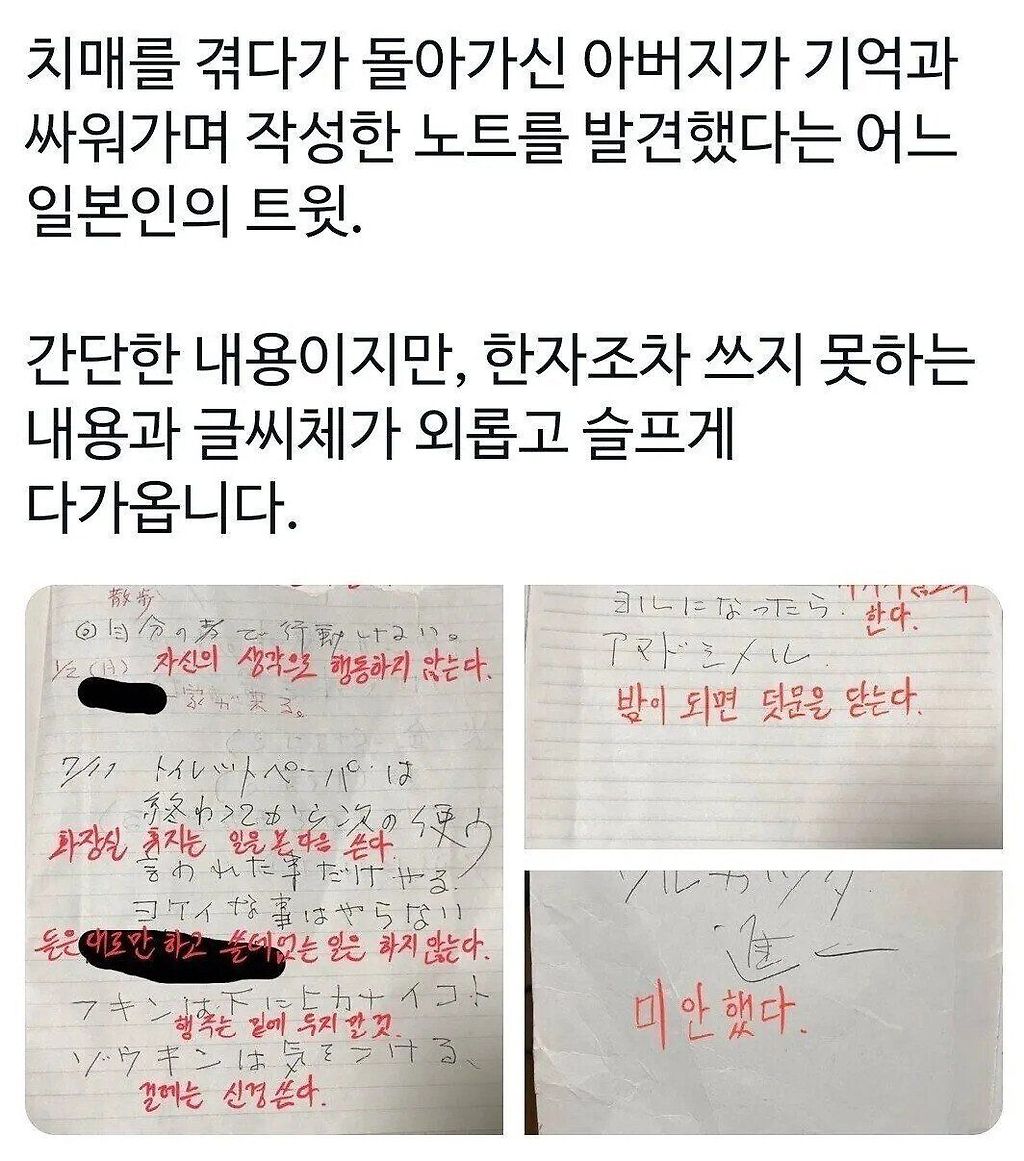 치매를 겪다가 돌아가신 아버지가 기억과
싸워가며 작성한 노트를 발견했다는 어느
일본인의 트윗.
간단한 내용이지만, 한자조차 쓰지 못하는
내용과 글씨체가 외롭고 슬프게
다가옵니다.
散歩
◎自分の考で行動しない。
자신의 생각으로 행동하지 않는다.
一家が来る。
7/17 トイレットペーパーは
終わってから次の使ウ
화장실 휴지는 일을 본 다음 쓴다.
言われた事だけやる.
ヨケイな事はやらない
듣은 대로만 하고 쓸데없는 일은 하지 않는다.
フキンは下に
행주는 밑에 두지 말 것.
ゾウキンは気をつける、
걸레는 신경 쓴다.
ヨルになったら.
한다.
アマドシメル.
밤이 되면 덧문을 닫는다.
進一
미안했다.